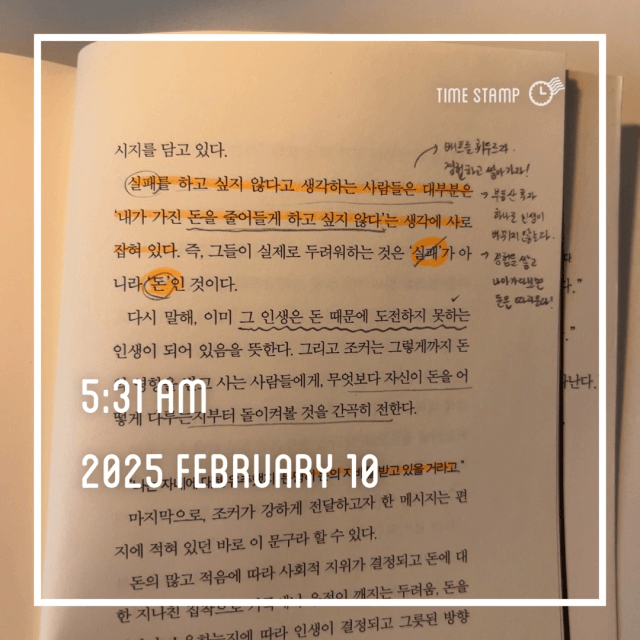 TIME STAMP
시지를 담고 있다.
실패를 하고 싶지 않다고 생각하는 사람들은 대부분은
'내가 가진 돈을 줄어들게 하고 싶지 않다'는 생각에 사로
잡혀 있다. 즉, 그들이 실제로 두려워하는 것은 '실패'가 아
니라 '돈'인 것이다.
다시 말해, 이미 그 인생은 돈 때문에 도전하지 못하는
인생이 되어 있음을 뜻한다. 그리고 조커는 그렇게까지 돈
사는 사람들에게, 무엇보다 자신이 돈을 어
떻게 다루는지부터 돌이켜볼 것을 간곡히 전한다.
5:31 AM
2025 FEBRUARY 10
받고 있을 거라고."
마지막으로, 조커가 강하게 전달하고자 한 메시지는 편
지에 적혀 있던 바로 이 문구라 할 수 있다.
돈의 많고 적음에 따라 사회적 지위가 결정되고 돈에 대
한 지나친 집착으로 깨지는 두려움, 돈을
따라 인생이 결정되고 그릇된 방향
경험하고
부동산
하나로 인생이
바뀌지 않는다.
경험을 쌓고
난다.